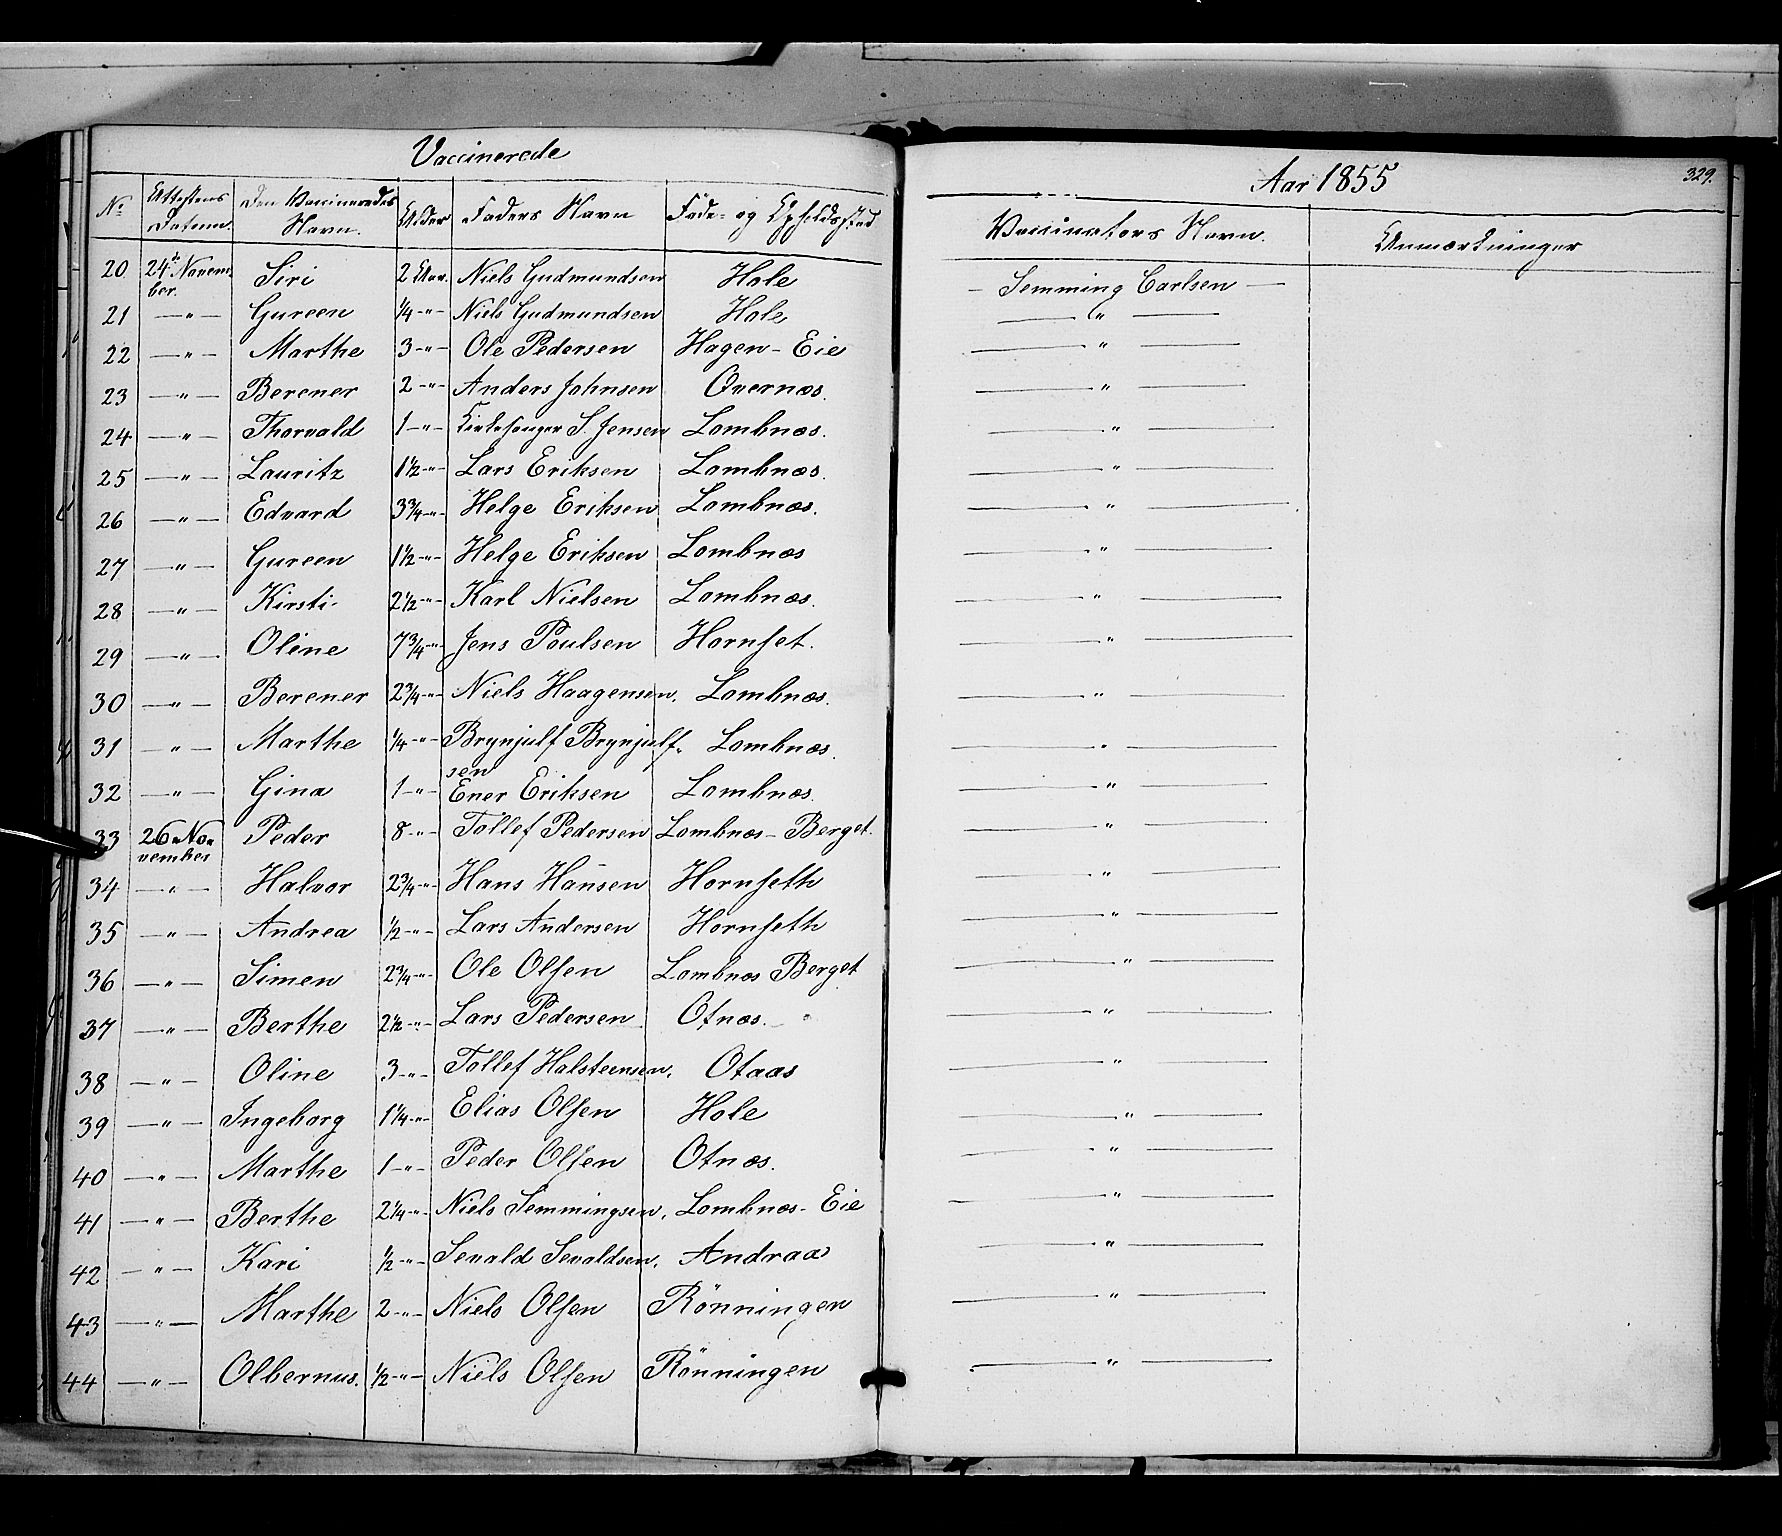 Vaccinerede
Aar 1855
329.
No Attestens Datum. Den Vaccineredes Navn. Alder Faders Navn Føde- og Opholdssted Vaccinators Navn. Anmærkninger
20 24de Novem- ber. Siri 2 Aar. Niels Gudmundsen Hole – Semming Carlsen –
21 –"– Gureen 1/4 –"– Niels Gudmundsen Hole –"–
22 –"– Marthe 3 –"– Ole Pedersen Hagen-Eie –"–
23 –"– Berener 2 –"– Anders Johnsen Overnæs. –"–
24 –"– Thorvald 1 –"– Kirkesanger S. Jensen Lombnæs. –"–
25 –"– Lauritz 1 1/2 –"– Lars Eriksen Lombnæs. –"–
26 –"– Edvard 3 3/4 –"– Helge Eriksen Lombnæs. –"–
27 –"– Gureen 1 1/2 –"– Helge Eriksen Lombnæs –"–
28 –"– Kirsti 2 1/2 –"– Karl Nielsen Lombnæs. –"–
29 –"– Oline 7 3/4 –"– Jens Poulsen Hornset. –"–
30 –"– Berener 2 3/4 –"– Niels Haagensen. Lombnæs. –"–
31 –"– Marthe 1/4 –"– Brynjulf Brynjulf- sen Lombnæs. –"–
32 –"– Gina 1 –"– Ener Eriksen Lombnæs. –"–
33 26 No- vember Peder 8 –"– Tollef Pedersen Lombnæs-Berget. –"–
34 –"– Halvor 2 3/4 –"– Hans Hansen Hornseth –"–
35 –"– Andrea 1/2 –"– Lars Andersen Hornseth –"–
36 –"– Simen 2 3/4 –"– Ole Olsen Lombnæs Berget –"–
37 –"– Berthe 2 1/2 –"– Lars Pedersen Otnæs. –"–
38 –"– Oline 3 –"– Tollef Halsteensen. Otaas –"–
39 –"– Ingeborg 1 1/4 –"– Elias Olsen Hole –"–
40 –"– Marthe 1 –"– Peder Olsen Otnæs. –"–
41 –"– Berthe 2 1/4 –"– Niels Semmingsen. Lombnæs-Eie –"–
42 –"– Kari 1/2 –"– Sevald Sevaldsen. Andraa –"–
43 –"– Marthe 2 –"– Niels Olsen Rönningen –"–
44 –"– Olbernus. 1/2 –"– Niels Olsen Rönningen –"–